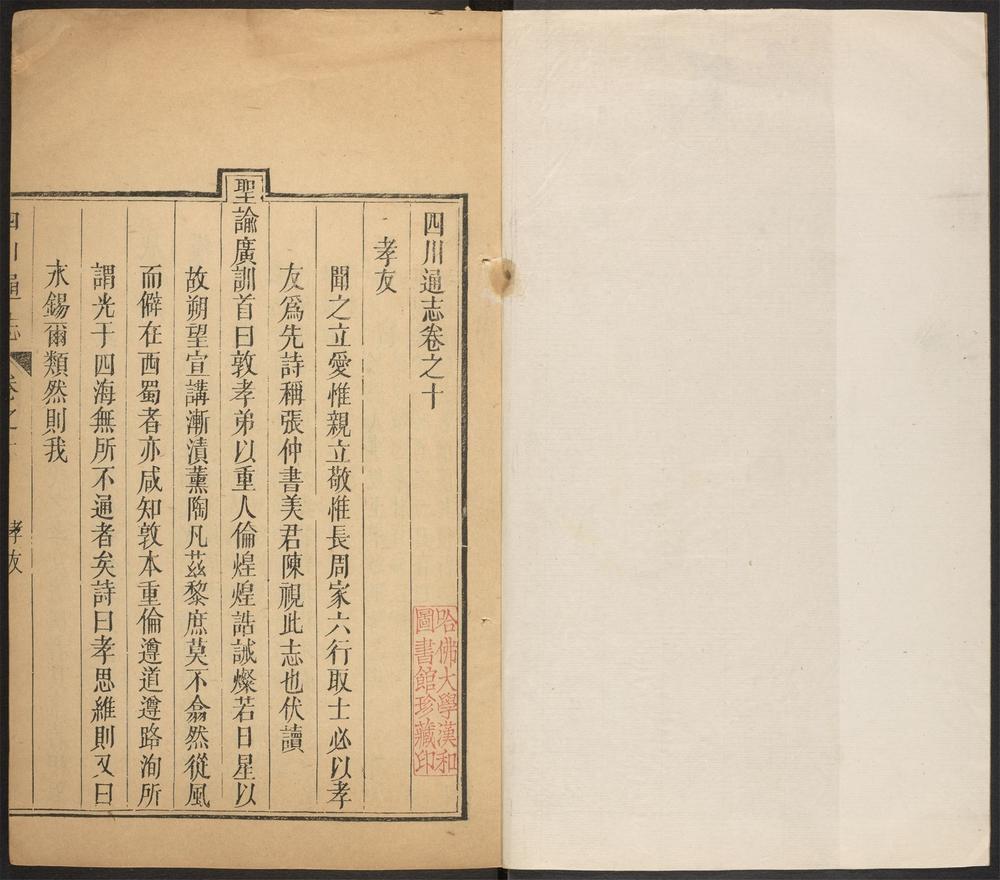 四川通志卷之十
孝友
聞之立愛惟親立敬惟長周家六行取士必以孝
友爲先詩稱張仲書美君陳視此志也伏讀
聖諭廣訓首曰敦孝弟以重人倫煌煌誥誡燦若日星以
故朔望宣講漸漬薰陶凡茲黎庶莫不翕然從風
而僻在西蜀者亦咸知敦本重倫遵道遵路洵所
謂光于四海無所不通者矣詩曰孝思維則又曰
永錫爾類然則我
四川通志 卷之十 孝友
哈佛大學漢和
圖書館珍藏印